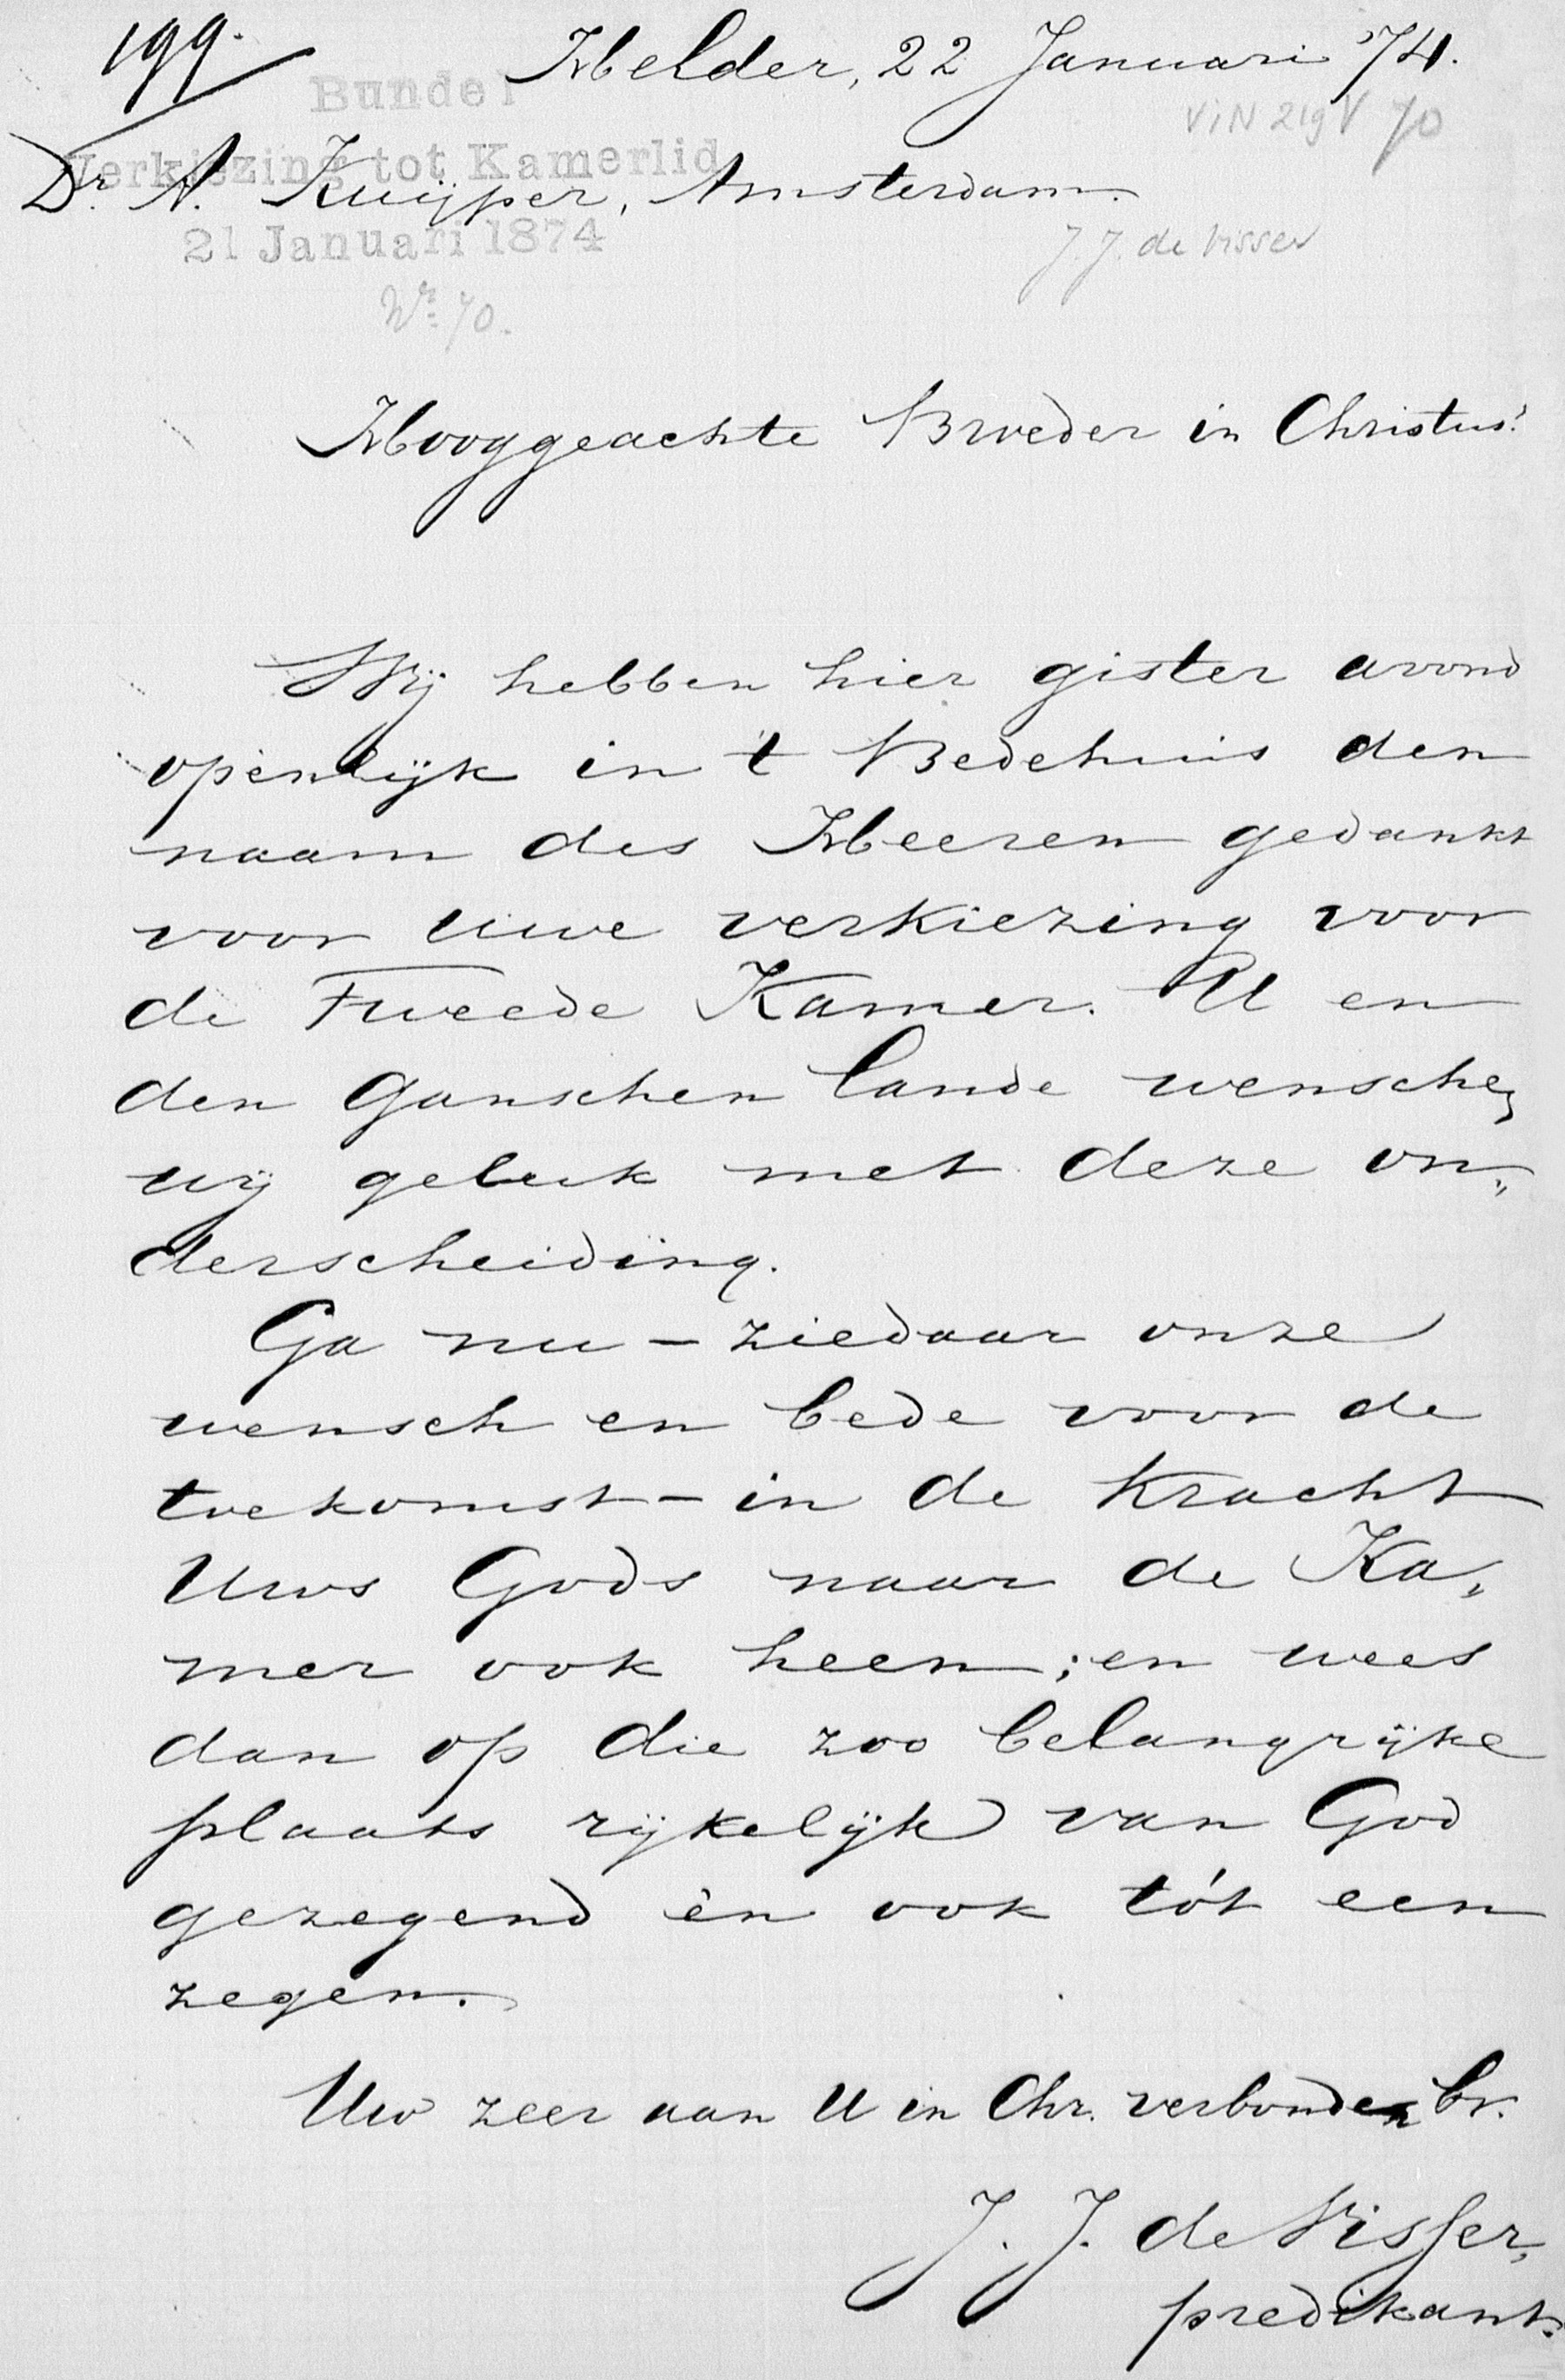 199.
Helder, 22 Januari '74.
Bundel
ViN 219 V 70
Verkiezing tot Kamerlid
Dr. A. Kuijper, Amsterdam.
21 Januari 1874
J. J. de Visser
Nr. 70.
Hooggeachte Broeder in Christus!
Wij hebben hier gister avond
openlijk in 't Bedehuis den
naam des Heeren gedankt
voor Uwe verkiezing voor
de Tweede Kamer. U en
den Ganschen lande wenschen
wij geluk met deze on„
derscheiding.
Ga nu – ziedaar onze
wensch en bede voor de
toekomst – in de Kracht
Uws Gods naar de Ka„
mer ook heen; en wees
dan op die zoo belangrijke
plaats rijkelijk van God
gezegend èn ook tót een
zegen.
Uw zeer aan U in Chr. verbonden br.
J. J. de Visser,
predikant.